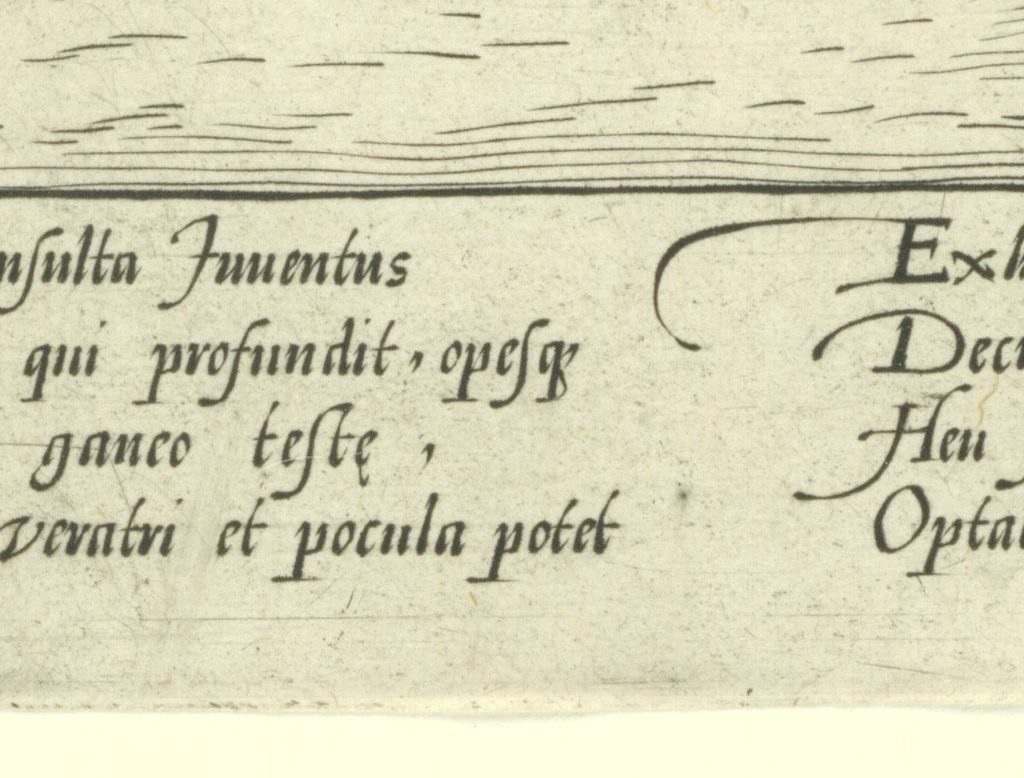 nſulta Iuuentus
qui profundit, opeſq;
ganeo teſtę,
veratri et pocula potet
Exh
Decr
Heu
Opta